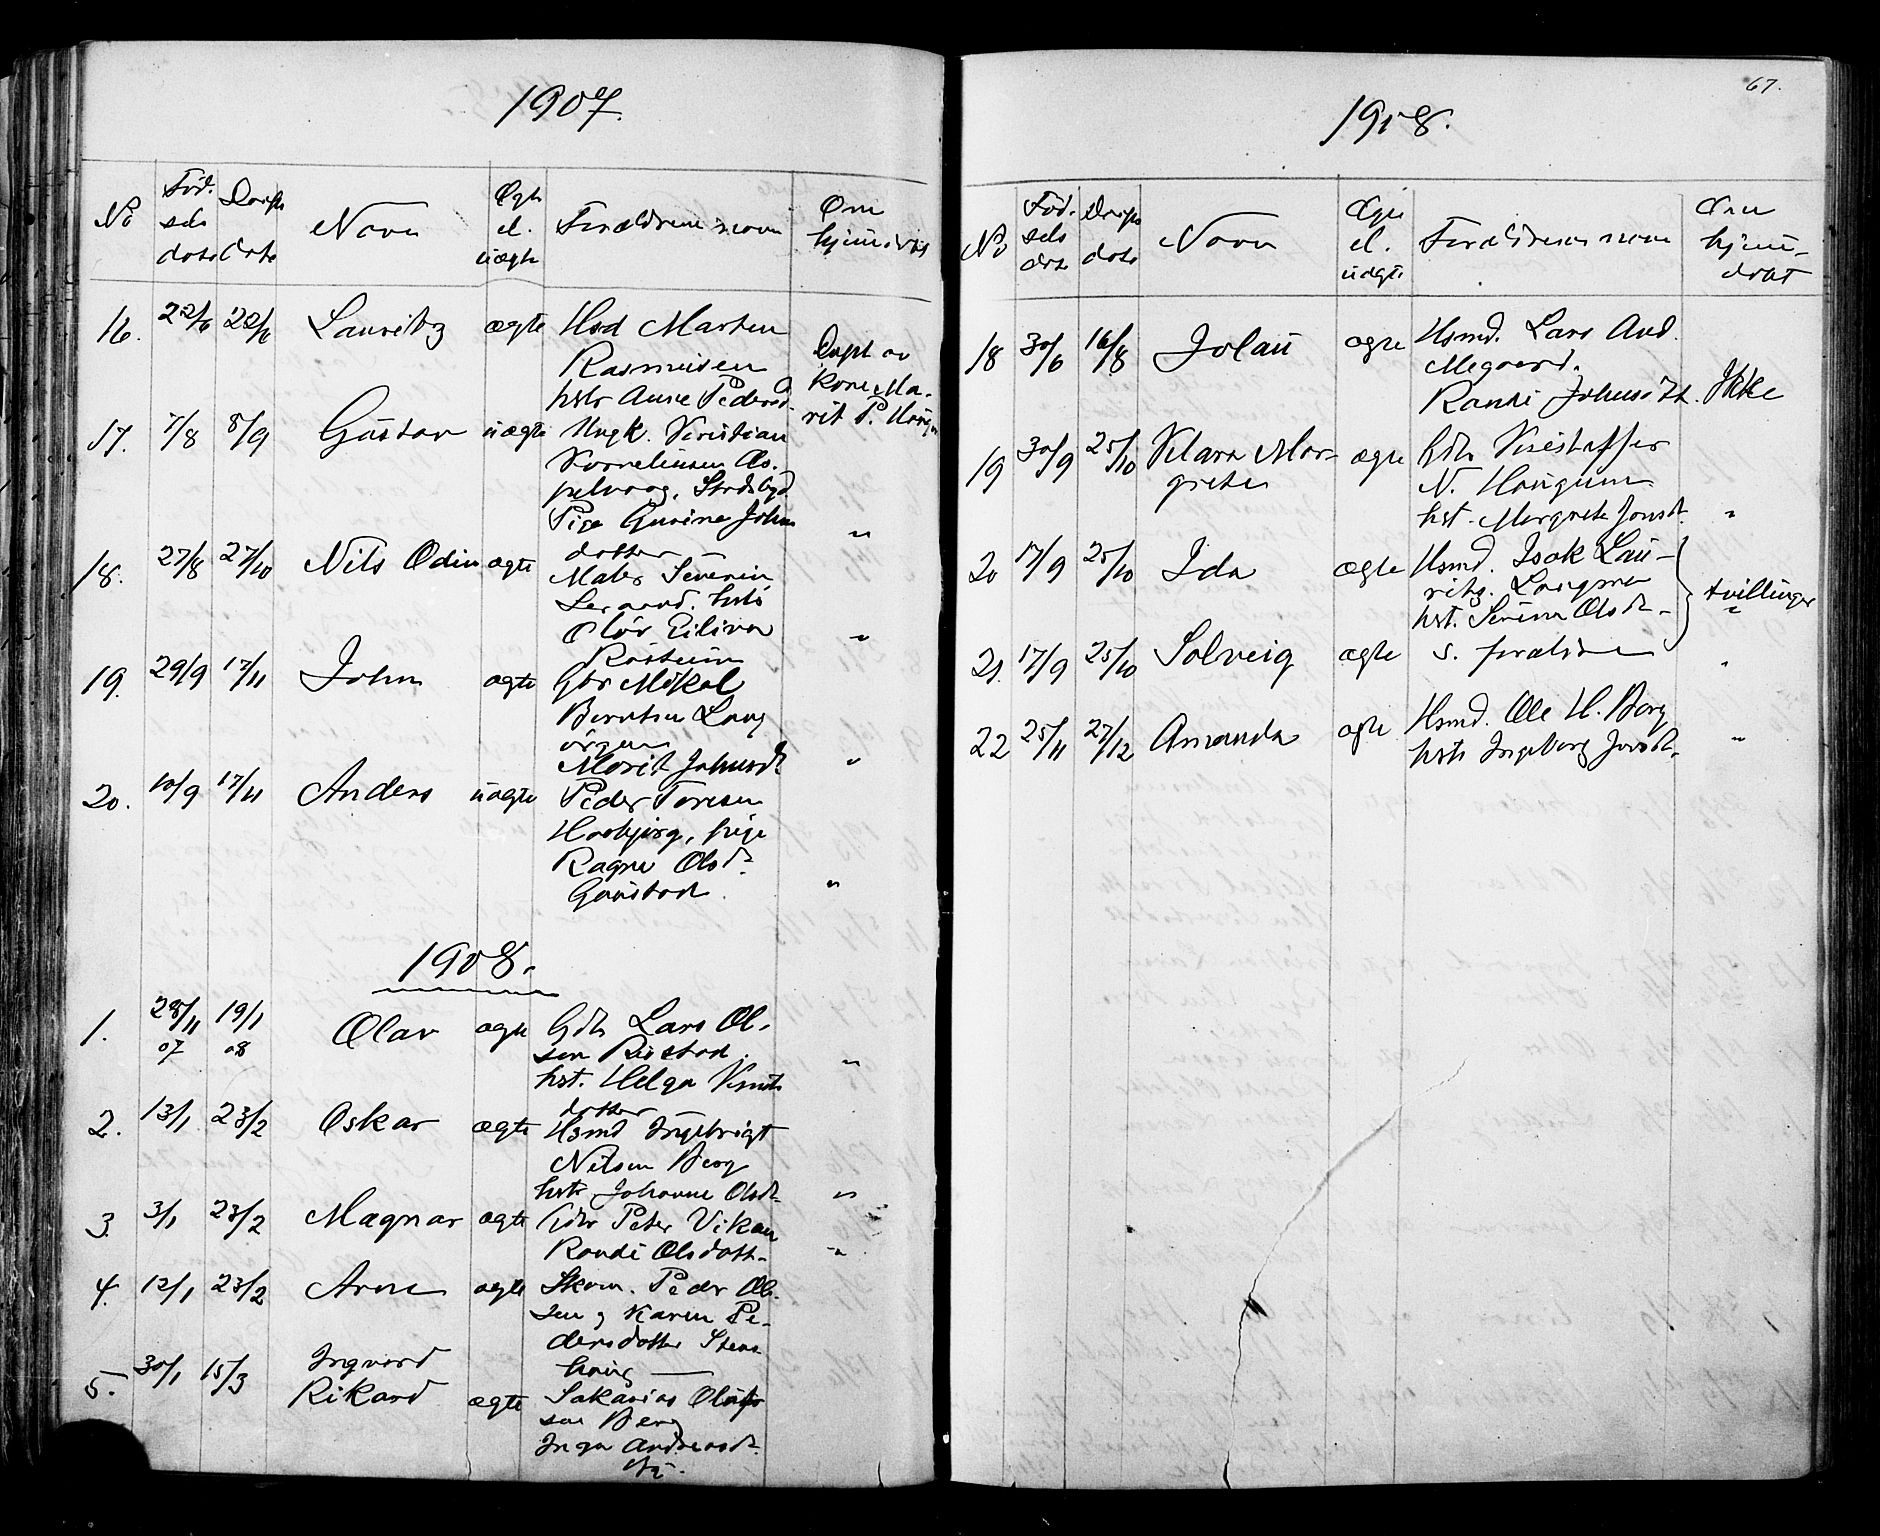 1907.
No
Föd.
sels
dato
Daaps
dato
Navn
Ægte
el.
uægte
Forældrenes navn
Om
hjemmedøbt
16. 22/6 22/6 Lauritz ægte Hsd Marten
Rasmussen
hstr Anne Pedersd.
Døpt av
kone Ma-
rit P. Haugen
17. 7/8 8/9 Gustav uægte Ungk. Kristian
Korneliusen As-
pelvaag, Stadsbygd
Pige Gurine Johns
dotter "
18. 27/8 27/10 Nils Odin ægte Maler Severin
hstr
Olöv Eiliva
"
19. 29/9 17/11 John ægte Gbr Mikal
Berntsen Laug
örgen
Marit Johnsdt "
20. 10/9 17/11 Anders uægte Peder Toresen
pige
Ragna Olsdt.
Gaustad "
1908.
1. 28/11 07 19/1 08 Olav ægte Gdb Lars Ol-
sen Rostad.
hst. Helga Knuts
dotter "
2. 13/1 23/2 Oskar ægte Hsmd Ingebrigt
Nilsen Berg
hstr Johanne Olsdt. "
3. 3/1 23/2 Magnar ægte Gdbr Peter Vikan
Randi Olsdott. "
4. 12/1 23/2 Arne ægte Skom. Peder Ol-
sen og Karen Pe-
dersdotter Stens
haug
5. 30/1 15/3 Ingvard
Rikard ægte Sakarias Olufs
sen Berg
Inga Andreasdt.
67.
1908.
No
Föd-
sels
dato
Daaps
dato
Navn
Ægte
el.
uægte
Forældrenes navn
Om
hjem-
døbt
18 30/6 16/8 Jolau ægte Hsmd. Lars And.
Megaard.
Randi Johnsdt. Ikke
19 30/9 25/10 Klara Mar-
grete ægte Gdb Kristoffer
N. Haugum
hst. Margrete Jonsdt. "
20 17/9 25/10 Ida ægte Hsmd. Isak Lau-
ritz. Langmo
hst. Serina Olsdt. tvillinger
"
21. 17/9 25/10 Solveig ægte s. foreldre "
22 25/11 27/12 Amanda ægte Hsmd. Ole H. Berg
hstr Ingeborg Jonsdt. "